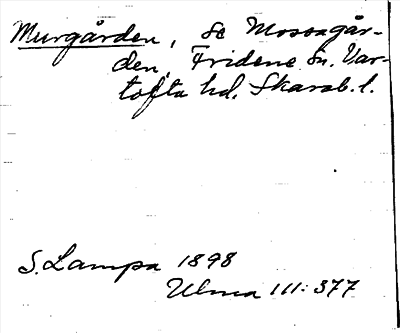 Murgården, se Mossagår-
den, Fridene sn. Var-
tofta hd. Skarab. l.
S. Lampa 1898
Ulma 111: 377